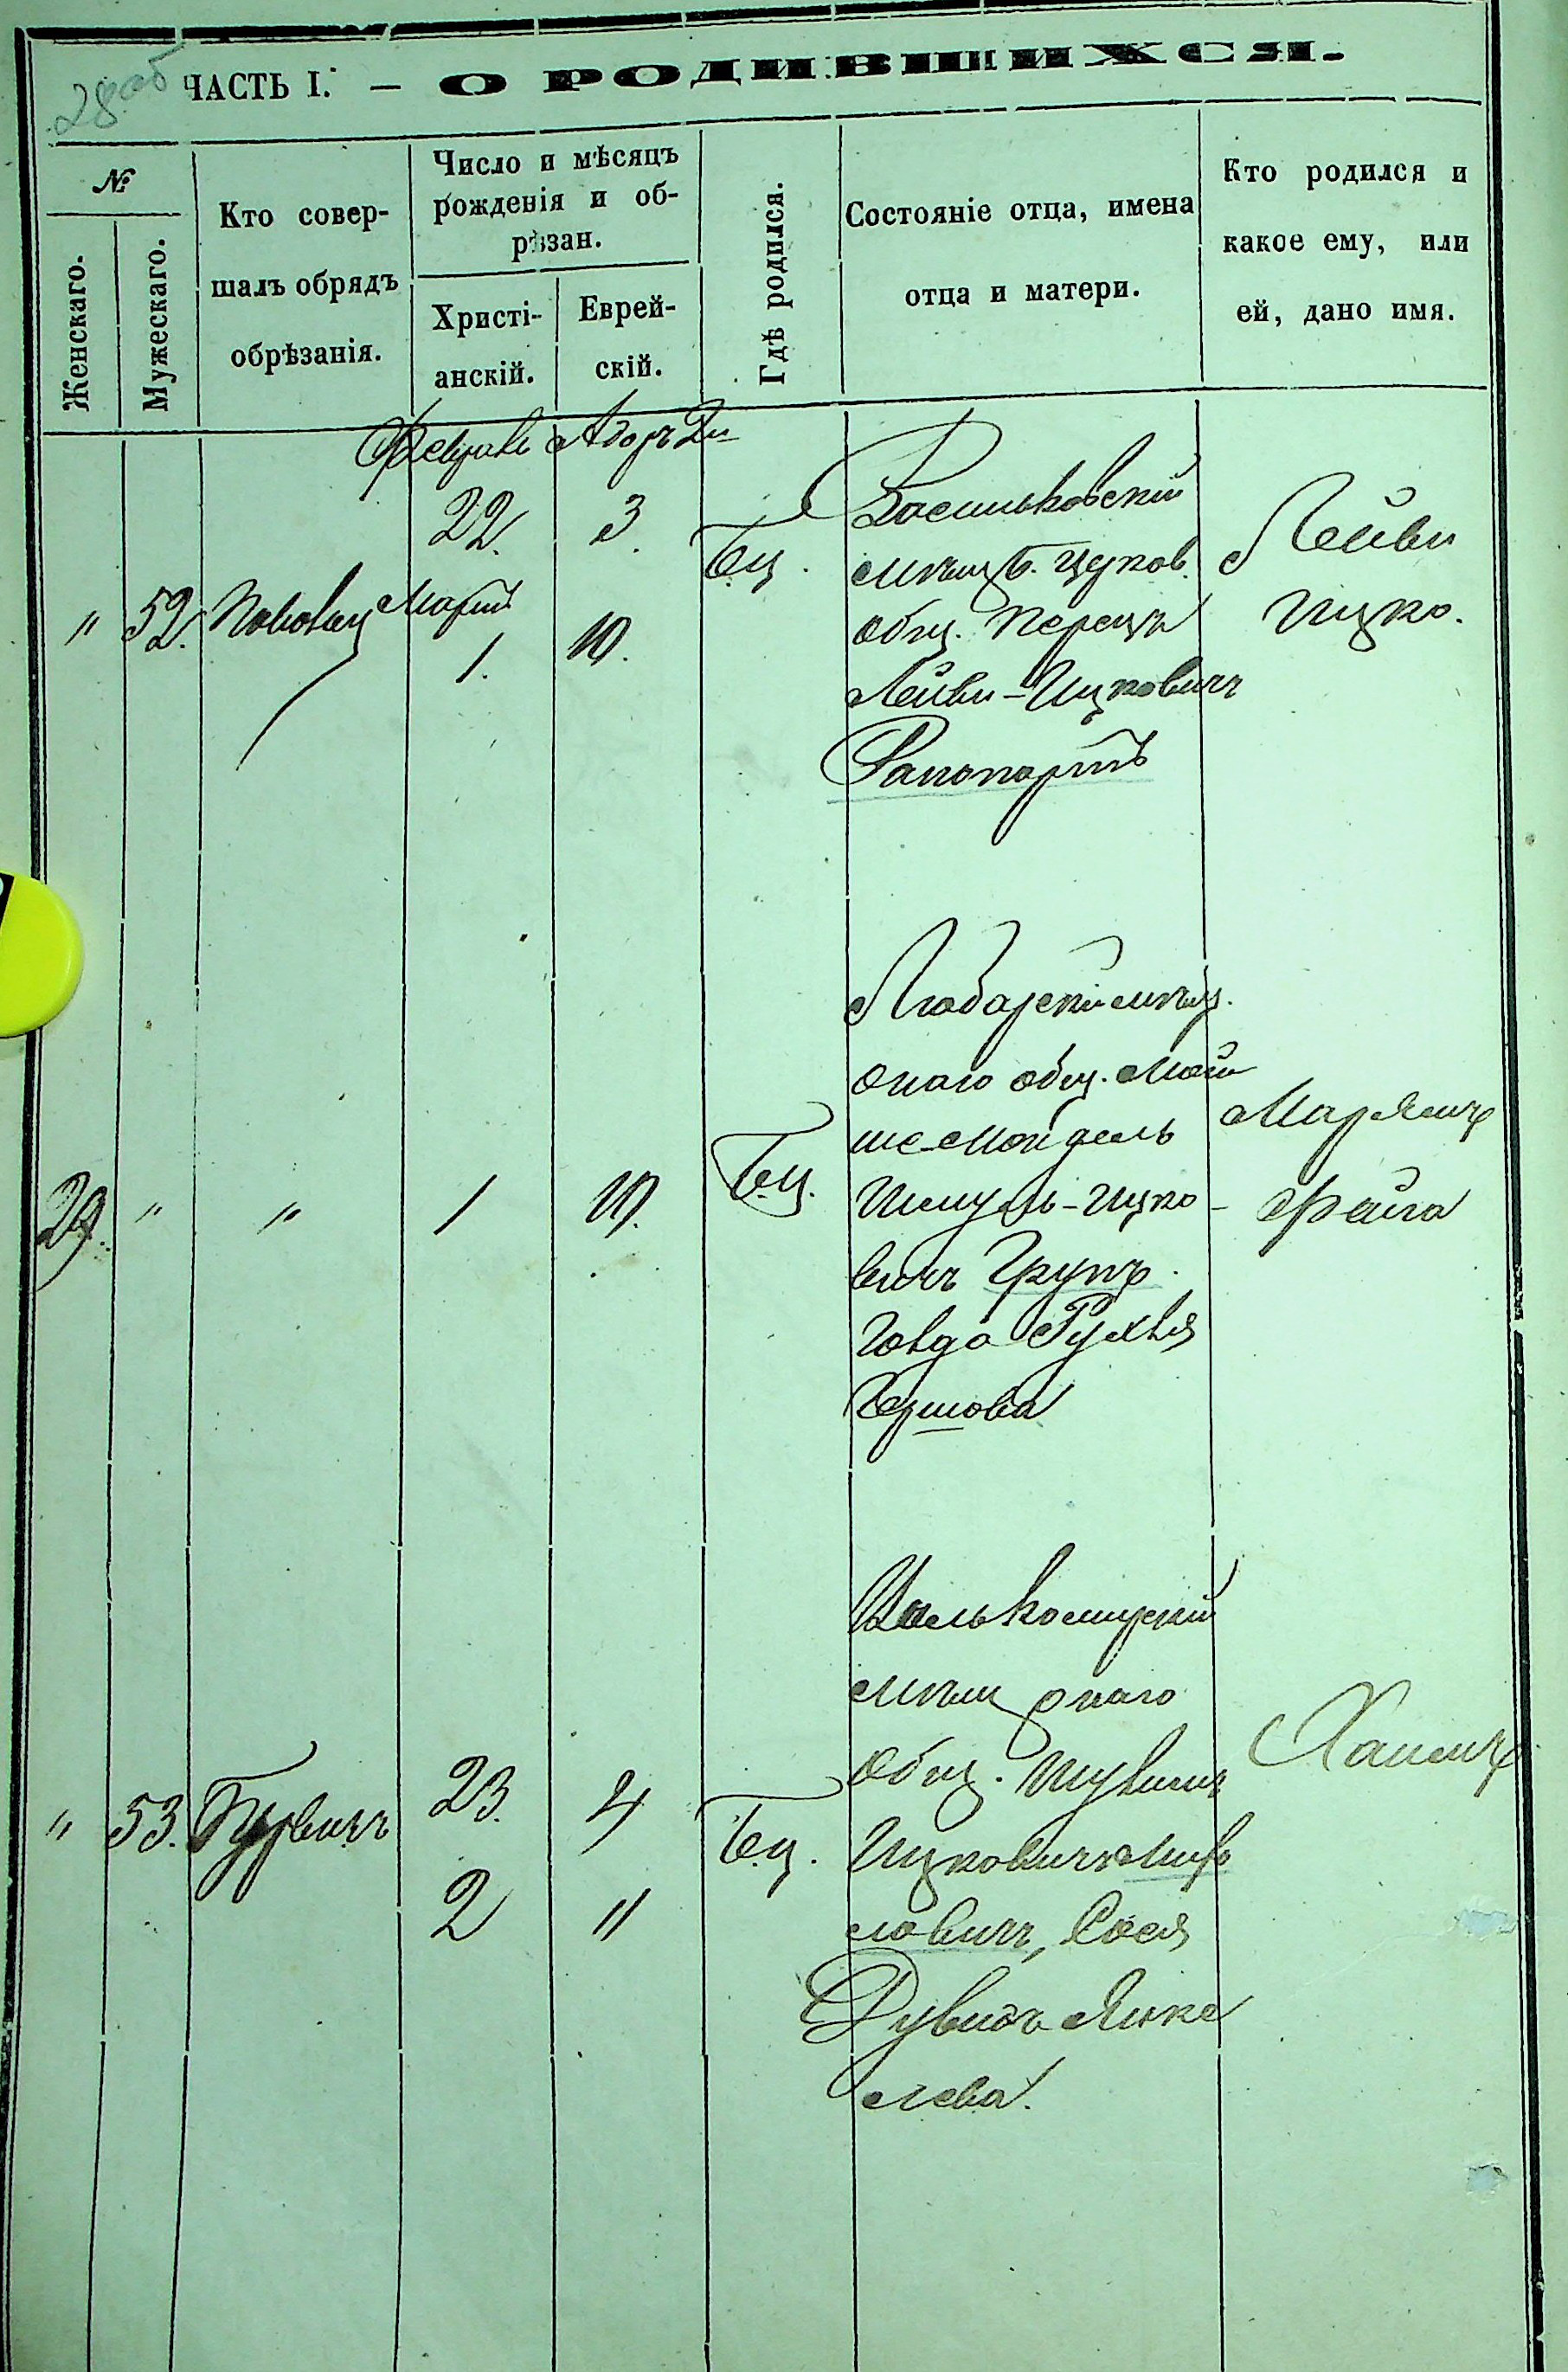 28 об
ЧАСТЬ I. — О РОДИВШИХСЯ.
№
Женскаго.
Мужескаго.
Кто совер-
шалъ обрядъ
обрѣзанія.
Число и мѣсяцъ
рожденія и об-
рѣзан.
Христі-
анскій.
Еврей-
скій.
Гдѣ родился.
Состояніе отца, имена
отца и матери.
Кто родился и
какое ему, или
ей, дано имя.
Февраль Адаръ
22. 3.
" 52. Мартъ
1. 10.
Бц.
Васильковскій
мѣщ. Б. Церков.
общ. Перецъ
Лейви-Ицковичъ
Рапопортъ
Лейви
Ицко.
29. " " 1 10. Бц.
Любарскій мѣщ.
онаго общ. Мой
ше-Мендель
Шмуль-Ицко-
вичъ Групъ.
Голда Рухля
Гершова
Марьямъ
Фейга
" 53. Гурвичъ
23. 4
2 11
Бц.
Вилькомирскій
мѣщ онаго
общ.
Ицковичъ
словичъ, Сося
Рувинъ Янке
лева.
Хаимъ